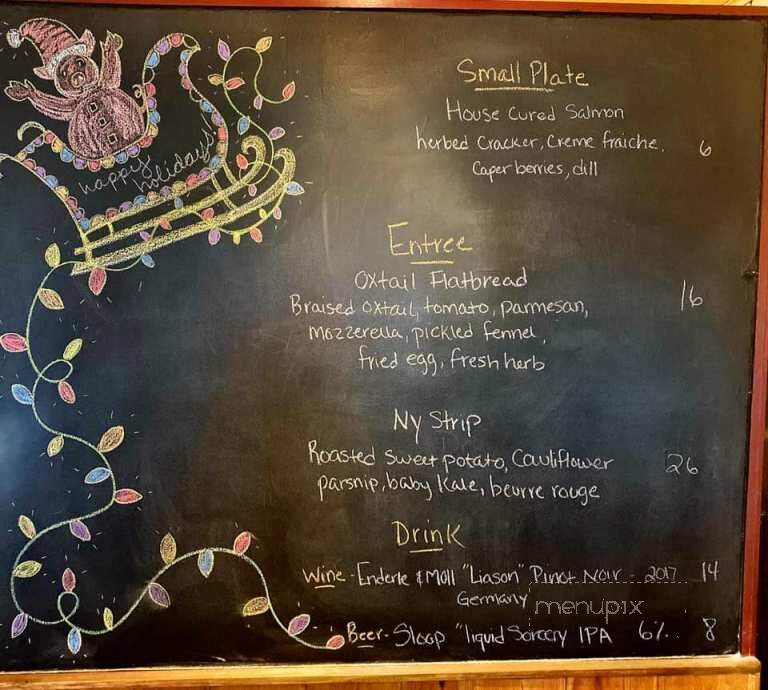 happy
holidays!
Small Plate
House Cured Salmon
herbed Cracker, Creme fraiche, 6
Caper berries, dill
Entree
Oxtail Flatbread
Braised oxtail, tomato, parmesan, 16
mozzerella, pickled fennel,
fried egg, fresh herb
Ny Strip
Roasted sweet potato, Cauliflower 26
parsnip, baby kale, beurre rouge
Drink
Wine - Enderle & Moll "Liason" Pinot Noir - 2017 14
Germany
menupix
Beer - Sloop "liquid Sorcery IPA 6% 8